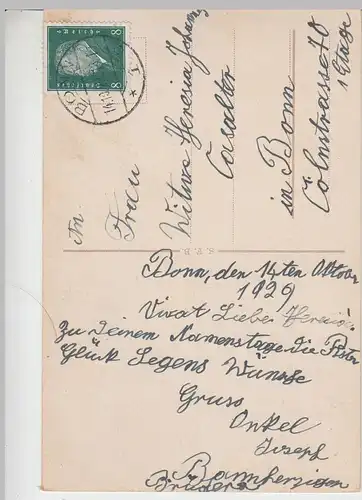 An
Frau
Witwe Theresia Johann
Casalter
in Bonn
Cölnstrasse 70
1 Etage
Bonn, den 14ten Oktober
1929
Vivat Liebe Theresia
Zu Deinem Namenstage die
Glück Segens Wünsche
Gruss
Onkel
Josef
Barmherzigen
Brüder
8 8